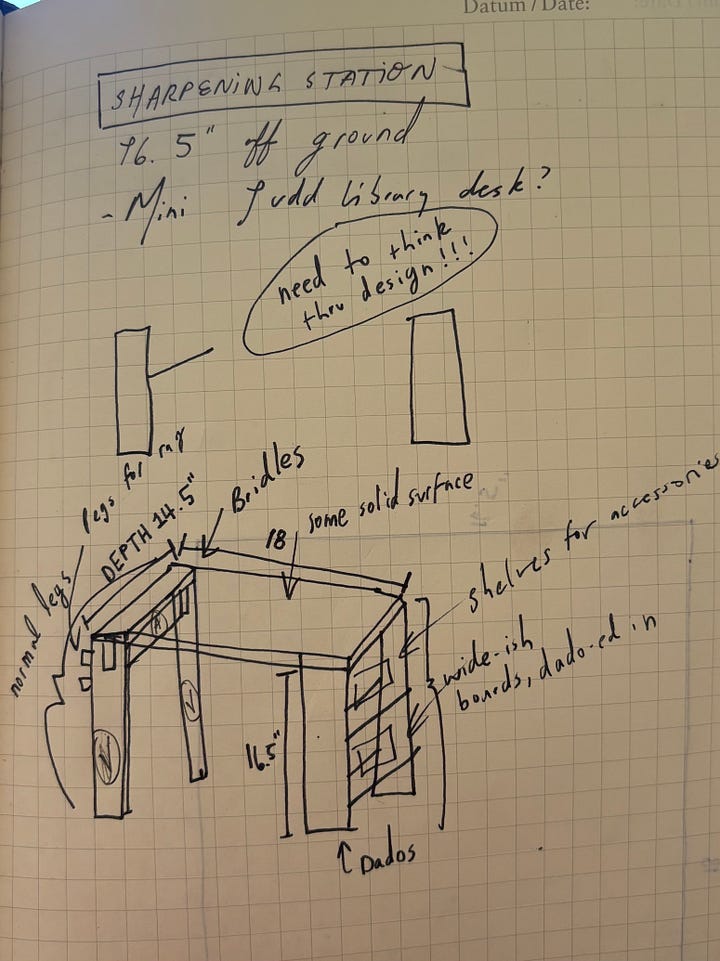 Datum / Date:
SHARPENING STATION
16.5" off ground
- Mini Judd library desk?
need to think
thru design!!!
legs for
normal legs
DEPTH 14.5"
Bridles
18
some solid surface
shelves for accessories
wide-ish
boards, dado-ed in
16.5"
↑ Dados